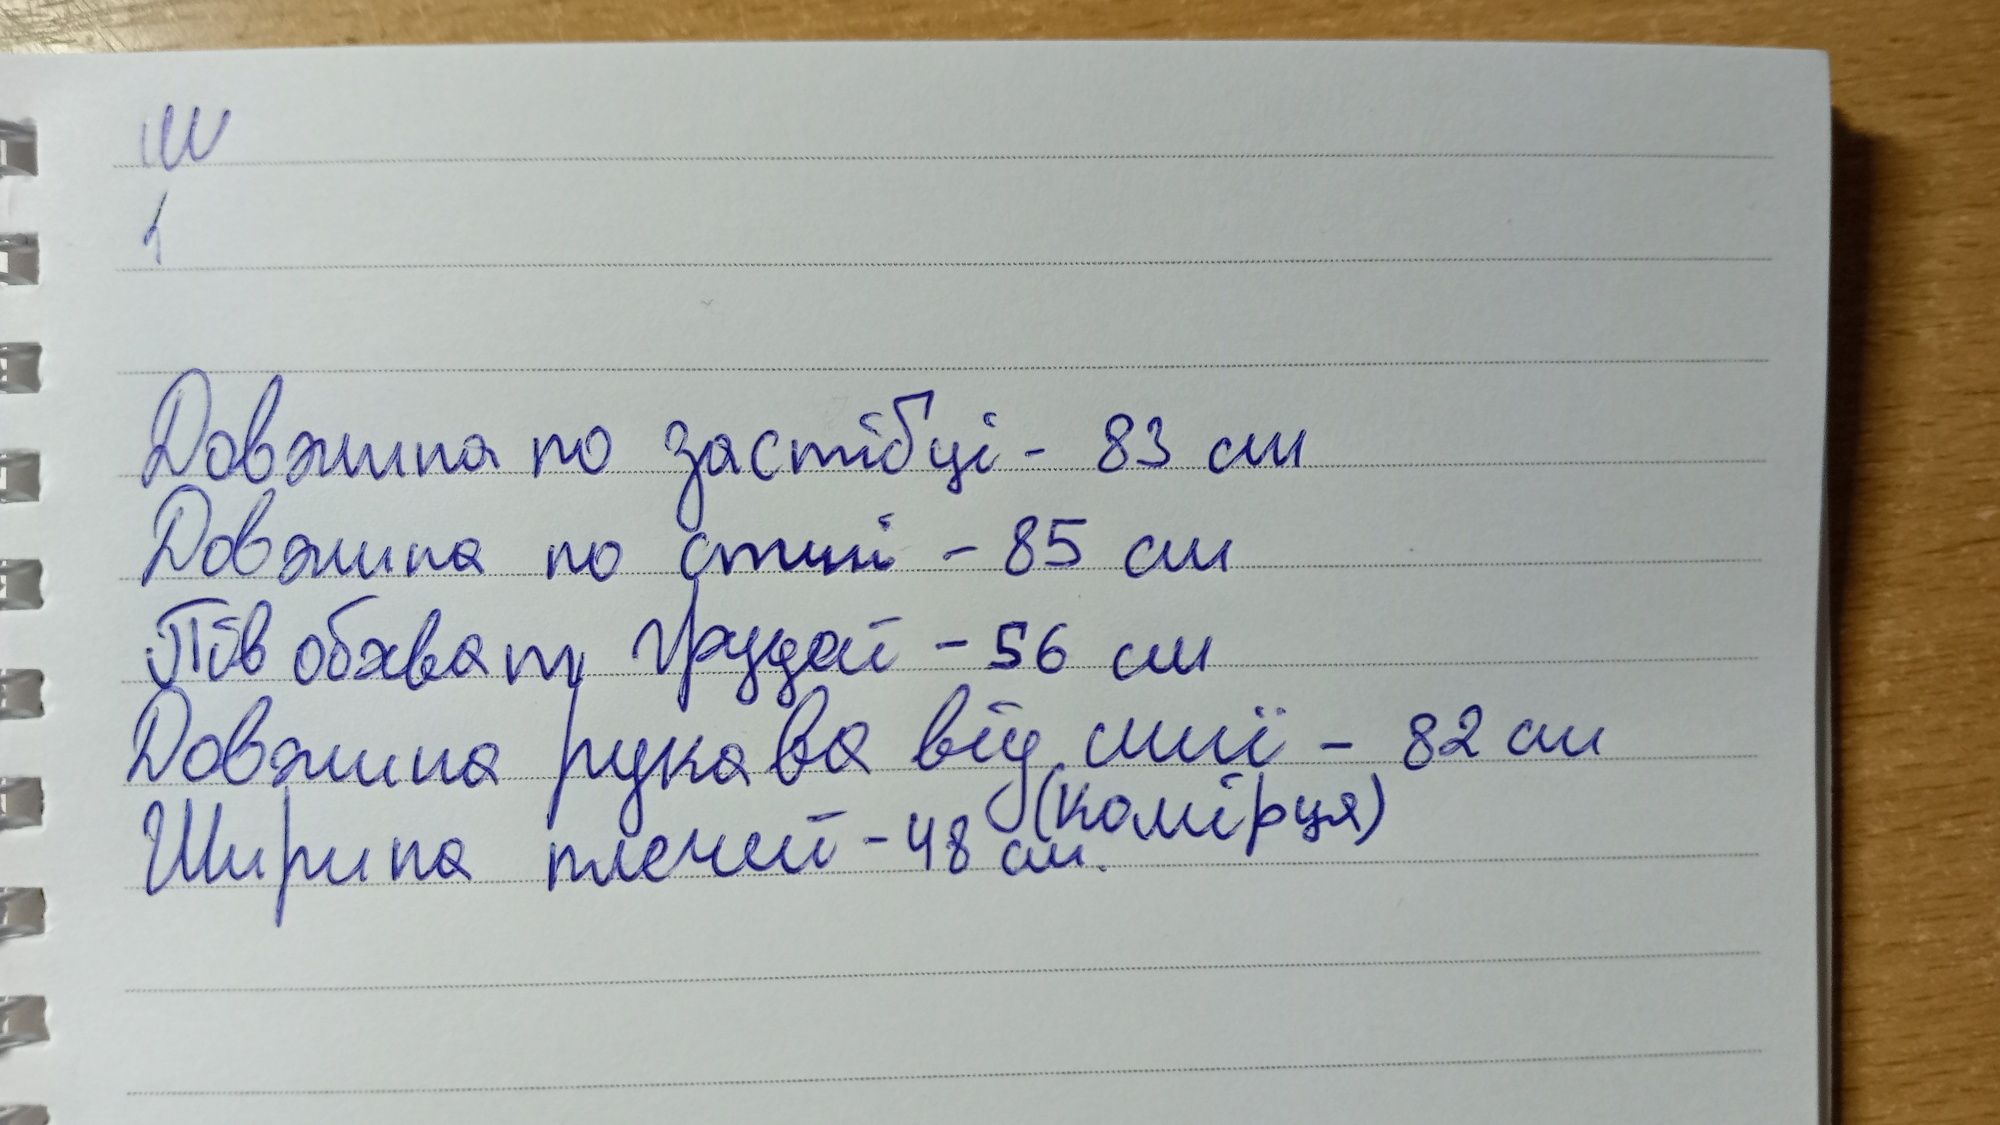 Довжина по застібці - 83 см
Довжина по спині - 85 см
Пів обхват грудей - 56 см
Довжина рукава від шиї - 82 см
(комірця)
Ширина плечей - 48 см.